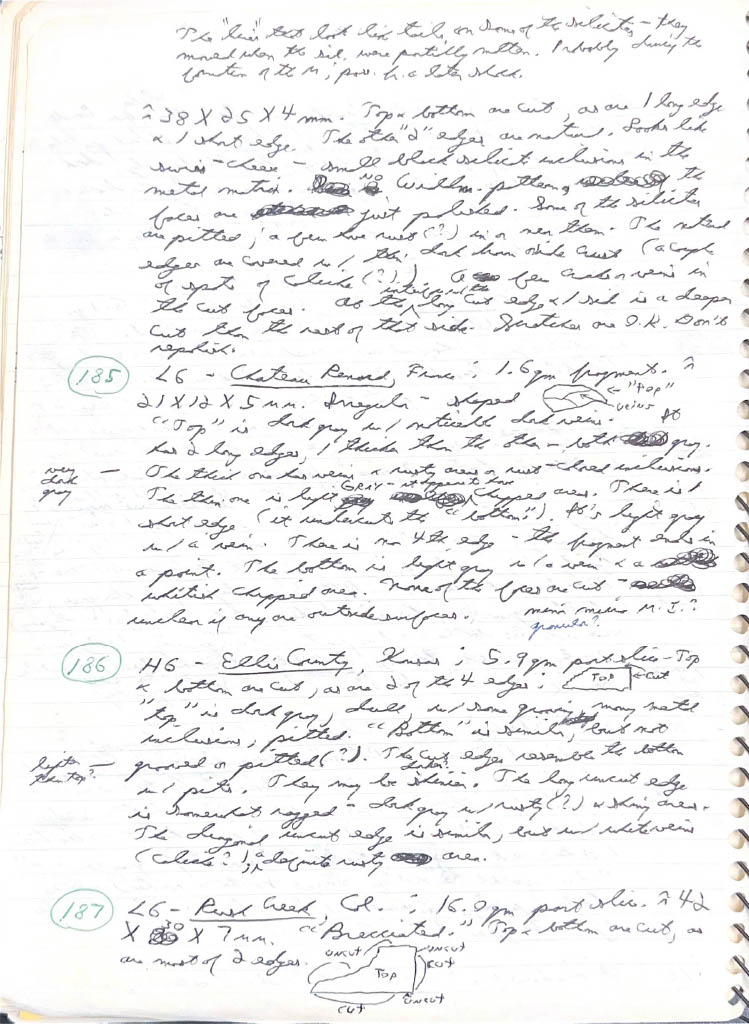 The "lines" that look like tails, on some of the silicates - they
moved when the sil. were partially molten. Probably during the
formation of the M; poss. fr. a later shock.
≈ 38 X 25 X 4 mm. Top & bottom are cut, as are 1 long edge
& 1 short edge. The other "2" edges are natural. Looks like
swiss-cheese - small black silicate inclusions in the
metal matrix. NO Widm. pattern, the
faces are just polished. Some of the silicates
are pitted; a few have rust (?) in or near them. The natural
edges are covered w/ thin, dark brown oxide crust (a couple
of spots of caliche (?).) A few cracks or veins in
the cut faces. At the long cut edge & 1 side is a deeper
cut than the rest of that side. Scratches are O.K. Don't
repolish.
185 L6 - Chateau Renard, France; 1.6 gm fragment. ≈
21 X 12 X 5 mm. Irregular-shaped ← "Top"
← veins
"Top" is dark gray w/ noticeable dark veins. It
has 2 long edges, 1 thicker than the other - both gray.
very dark gray — The thick one has veins & rusty areas or rust-colored inclusions.
The thin one is light GRAY - it appears to have chipped area. There is 1
short edge (it undercuts the "bottom"). It's light gray
w/ a vein. There is no 4th edge - the fragment ends in
a point. The bottom is light gray w/ a vein & a
whitish chipped area. None of the faces are cut -
unclear if any are outside surfaces.
granular?
186 H6 - Ellis County, Kansas; 5.9 gm part slice - Top
& bottom are cut, as are 2 of the 4 edges; TOP ← CUT
"Top" is dark gray, dull, w/ some grooving, many metal
inclusions, pitted. "Bottom" is similar, but not
lighter than top? — grooved or pitted (?). The cut edges resemble the bottom
w/ pits. They may be shinier. The long uncut edge
is somewhat ragged - dark gray w/ rusty (?) & shiny areas.
The diagonal uncut edge is similar, but w/ white veins
(Caliche?); a definite rusty area.
187 L6 - Rush Creek, Col.; 16.9 gm part slice. ≈ 42
X 30 X 7 mm. "Brecciated." Top & bottom are cut, as
are most of 2 edges. UNCUT UNCUT
TOP CUT
CUT UNCUT